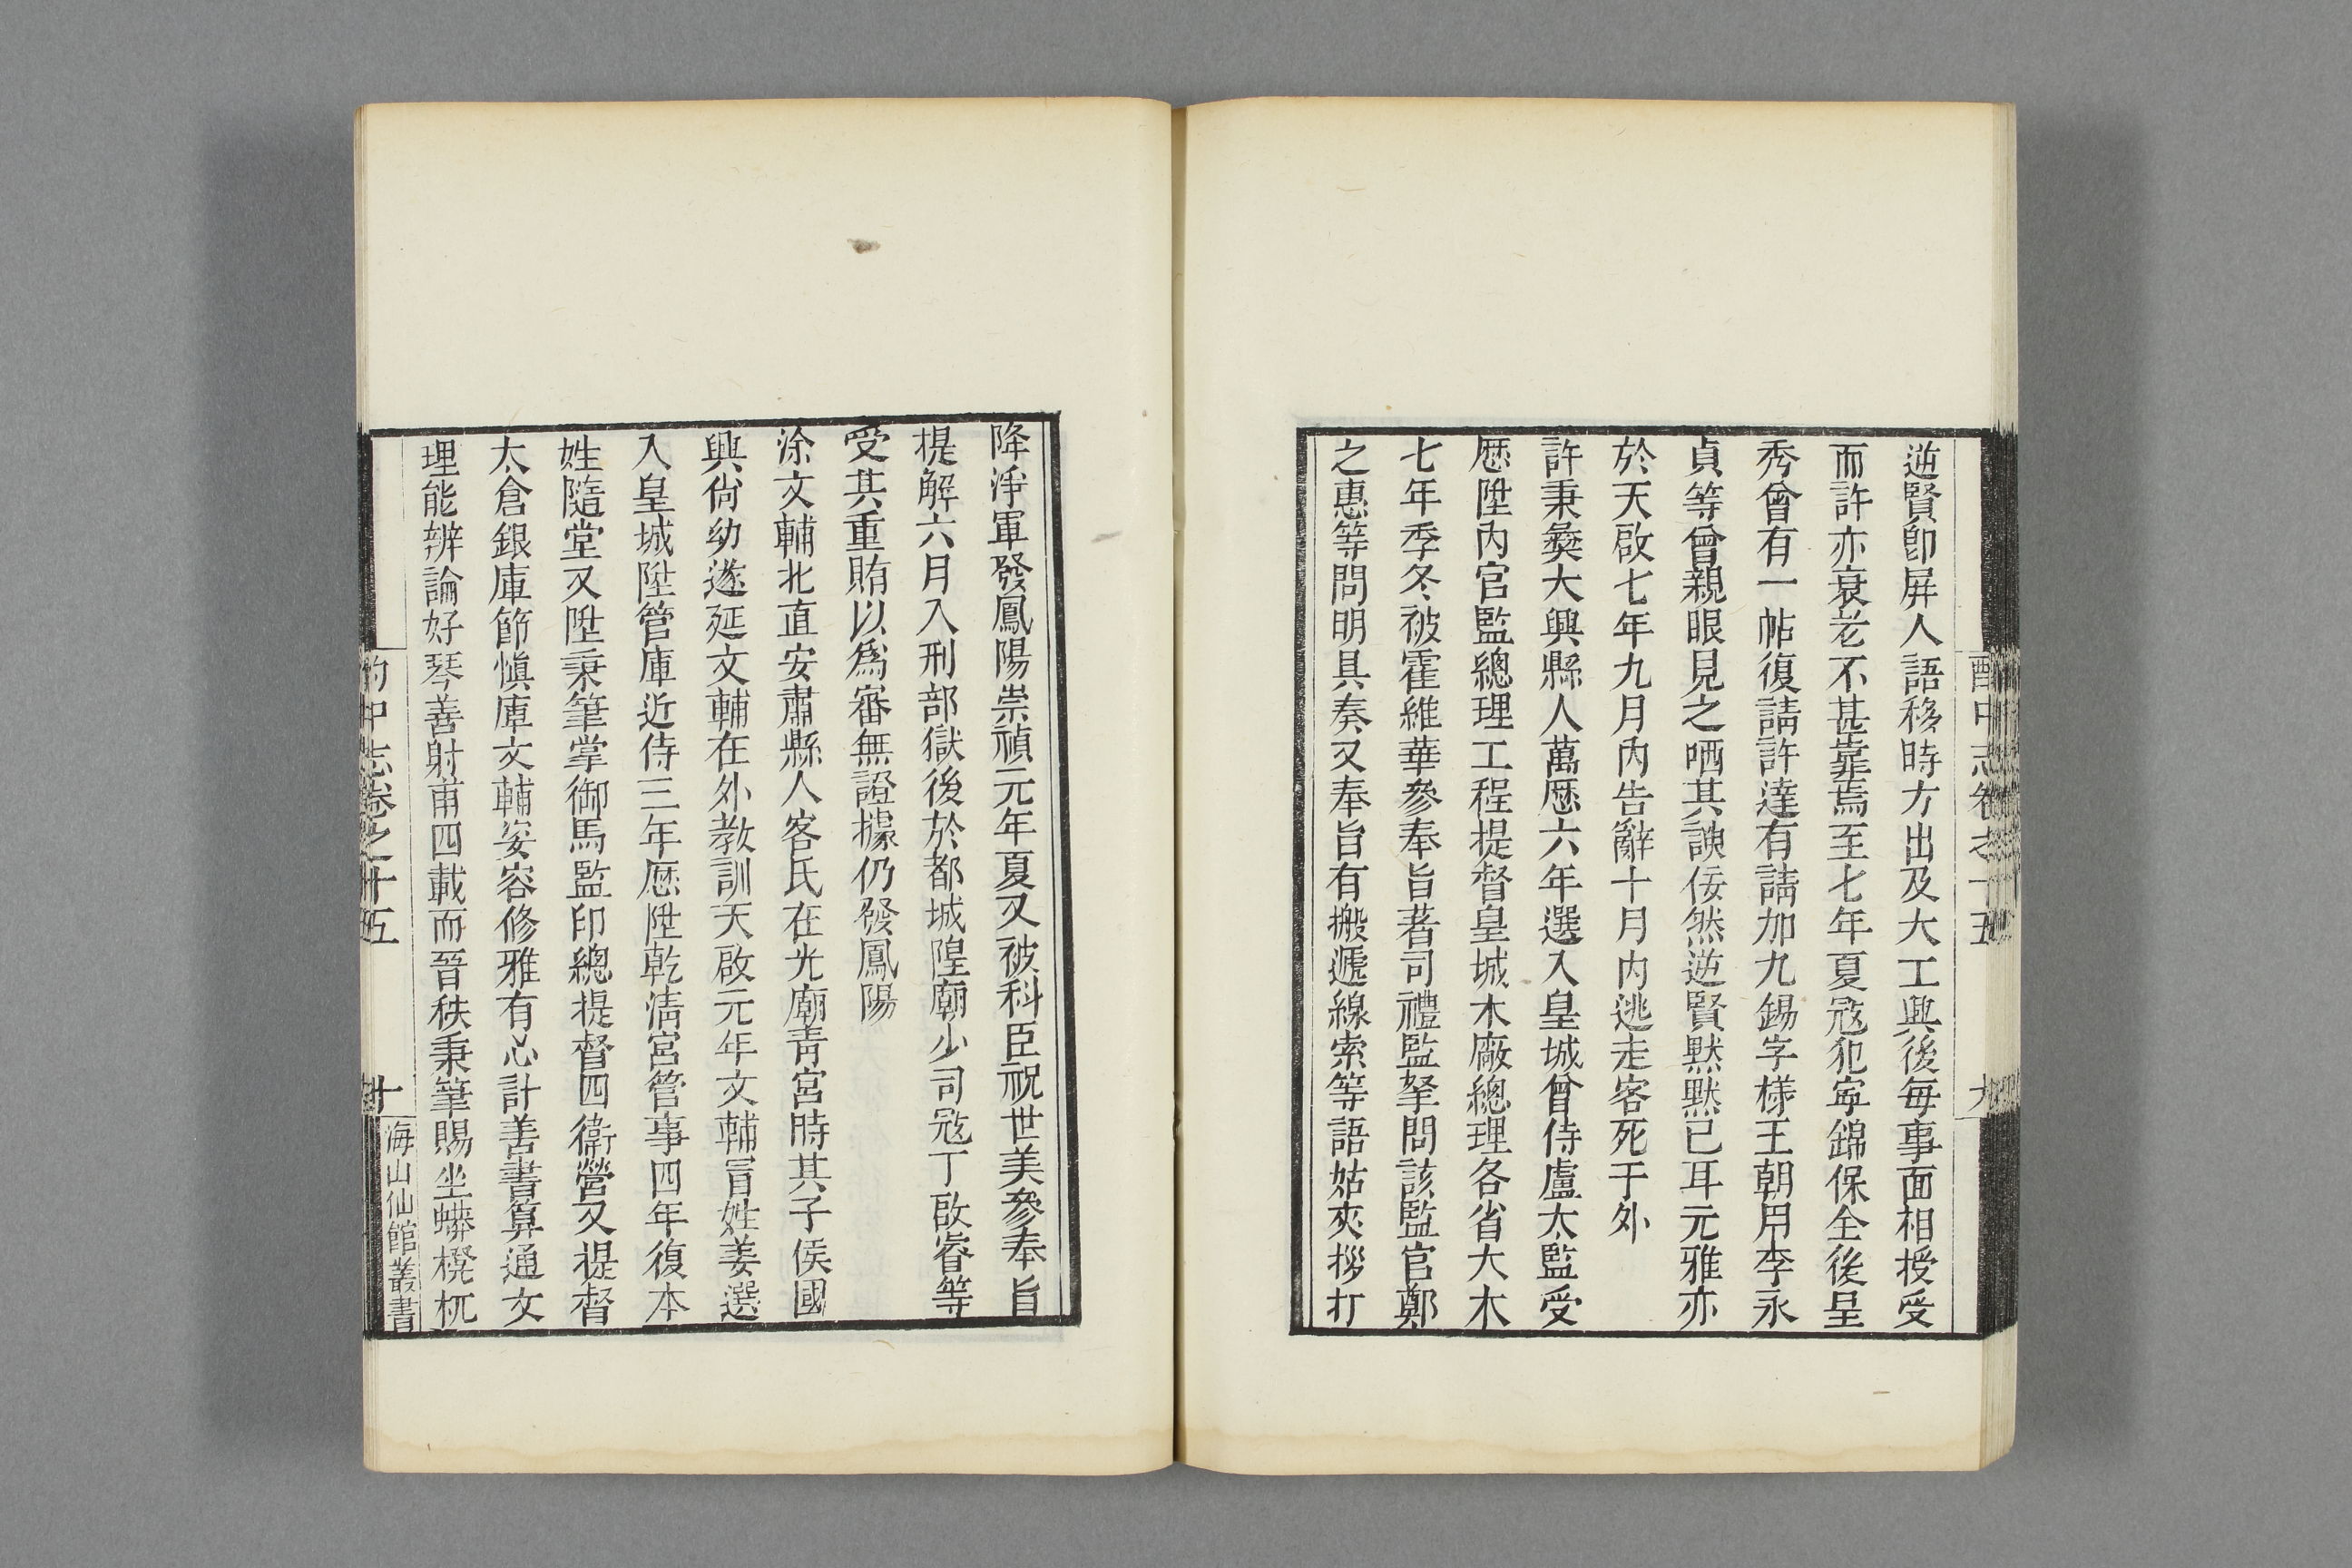 酌中志卷之十五
九
逆賢卽屛人語移時方出及大工興後每事面相授受
而許亦衰老不甚靠焉至七年夏寇犯寧錦保全後呈
秀曾有一帖復請許達有請加九錫字樣王朝用李永
貞等曾親眼見之哂其諛佞然逆賢默默已耳元雅亦
於天啟七年九月內告辭十月內逃走客死于外
許秉彝大興縣人萬歷六年選入皇城曾侍盧太監受
歷陞內官監總理工程提督皇城木廠總理各省大木
七年季冬被霍維華參奉旨著司禮監拏問該監官鄭
之惠等問明具奏又奉旨有搬遞線索等語姑夾拶打
降淨軍發鳳陽崇禎元年夏又被科臣祝世美參奉旨
提解六月入刑部獄後於都城隍廟少司寇丁啟睿等
受其重賄以爲審無證據仍發鳳陽
涂文輔北直安肅縣人客氏在光廟靑宮時其子侯國
興尙幼遂延文輔在外教訓天啟元年文輔冒姓姜選
入皇城陞管庫近侍三年歷陞乾淸宮管事四年復本
姓隨堂又陞秉筆掌御馬監印總提督四衞營又提督
太倉銀庫節愼庫文輔姿容修雅有心計善書算通文
理能辨論好琴善射甫四載而晉秩秉筆賜坐蟒櫈杌
酌中志卷之十五
十
海山仙館叢書